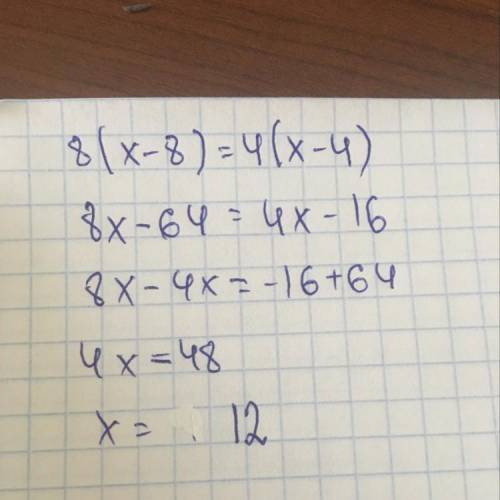 8(x-8)=4(x-4)
8x-64=4x-16
8x-4x=-16+64
4x=48
x= 12